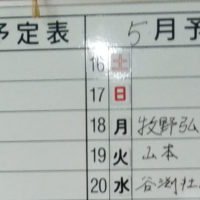 予定表 5月予
16 土
17 日
18 月 牧野弘
19 火 山本
20 水 谷渕社